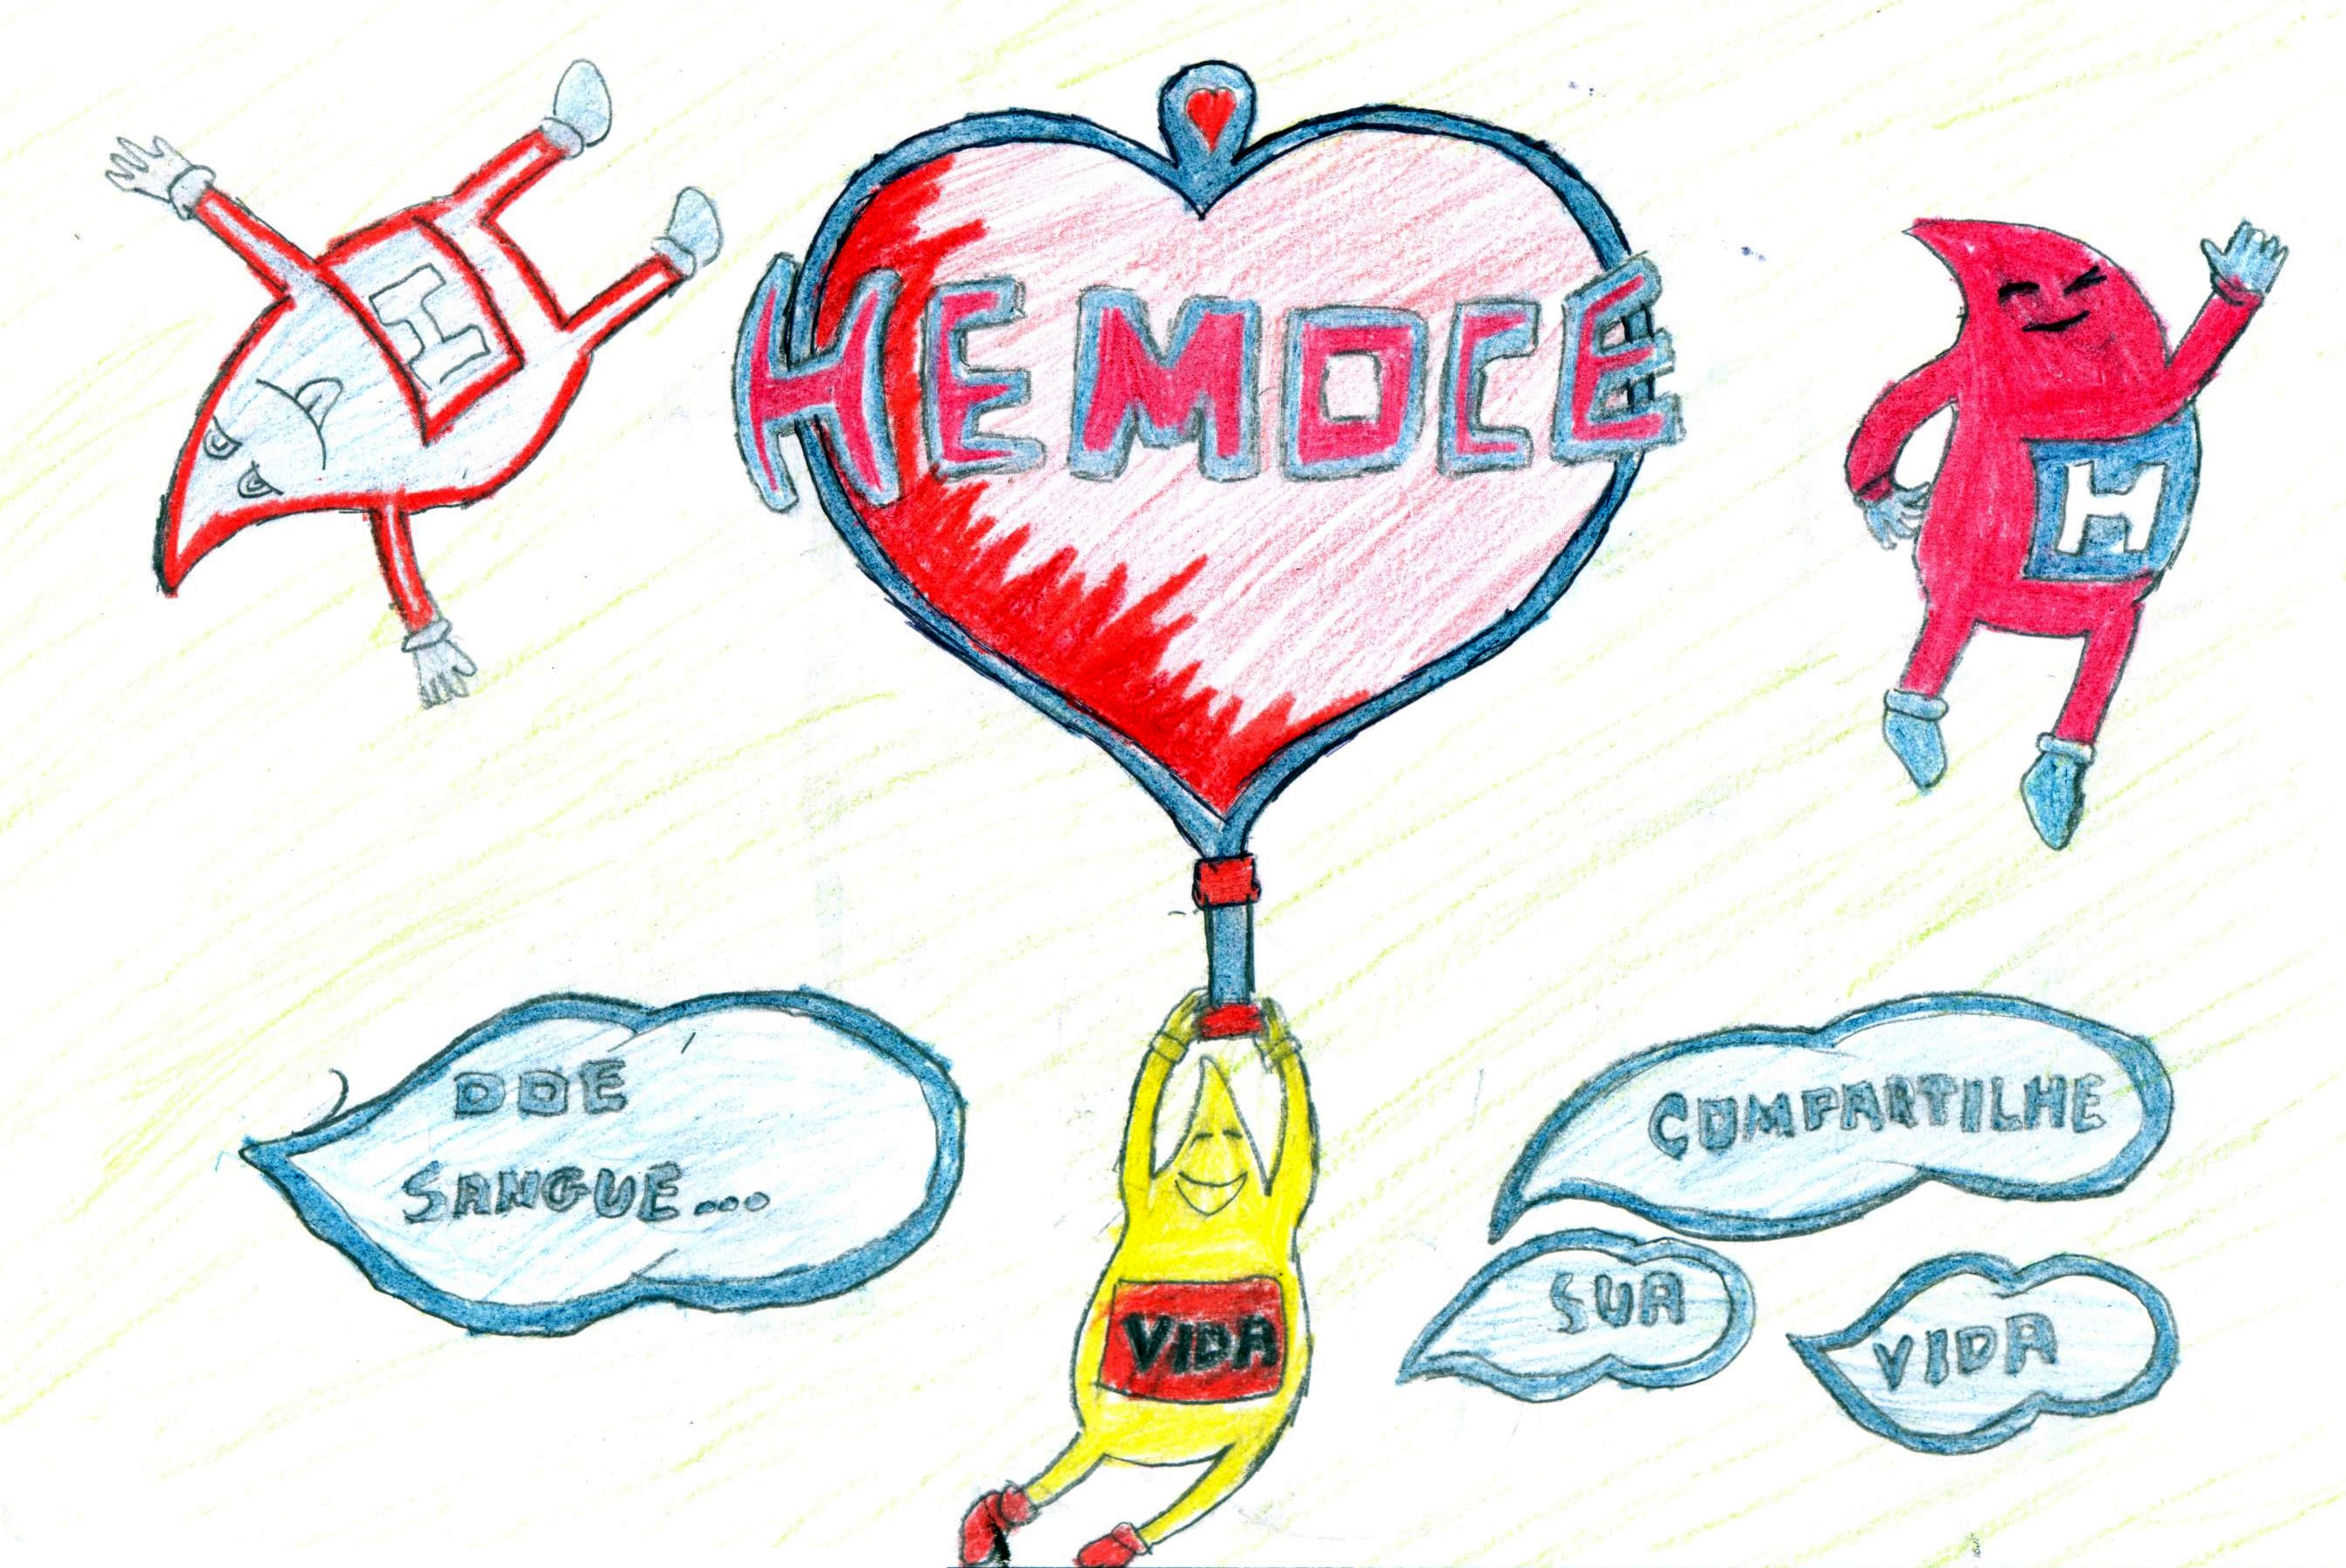 H
HEMOCE
H
DOE
SANGUE...
VIDA
COMPARTILHE
SUA
VIDA